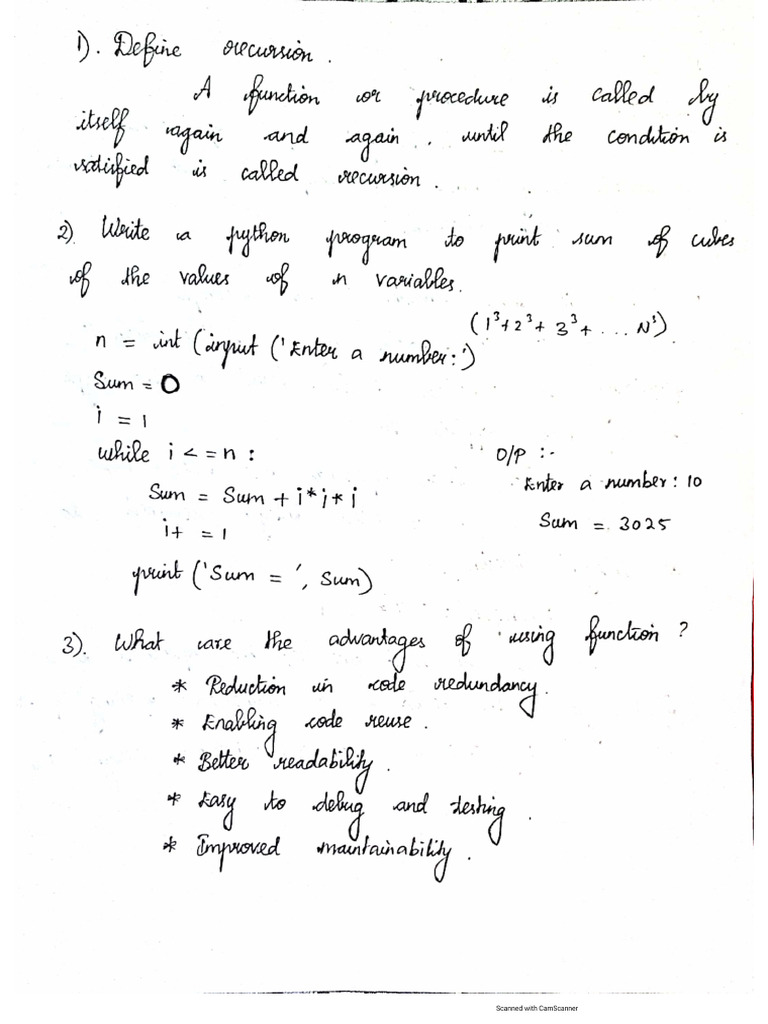 1). Define recursion.
A function or procedure is called by
itself again and again, until the condition is
satisfied is called recursion.
2) Write a python program to print sum of cubes
of the values of n variables.
(1³+2³+3³+...N³)
n = int (input ('Enter a number:')
Sum = 0
i = 1
while i <=n :
Sum = Sum + i*i*i
i+ = 1
print ('Sum = ', Sum)
O/P :-
Enter a number: 10
Sum = 3025
3). What are the advantages of using function?
* Reduction in code redundancy.
* Enabling code reuse.
* Better readability.
* Easy to debug and testing.
* Improved maintainability.
Scanned with CamScanner